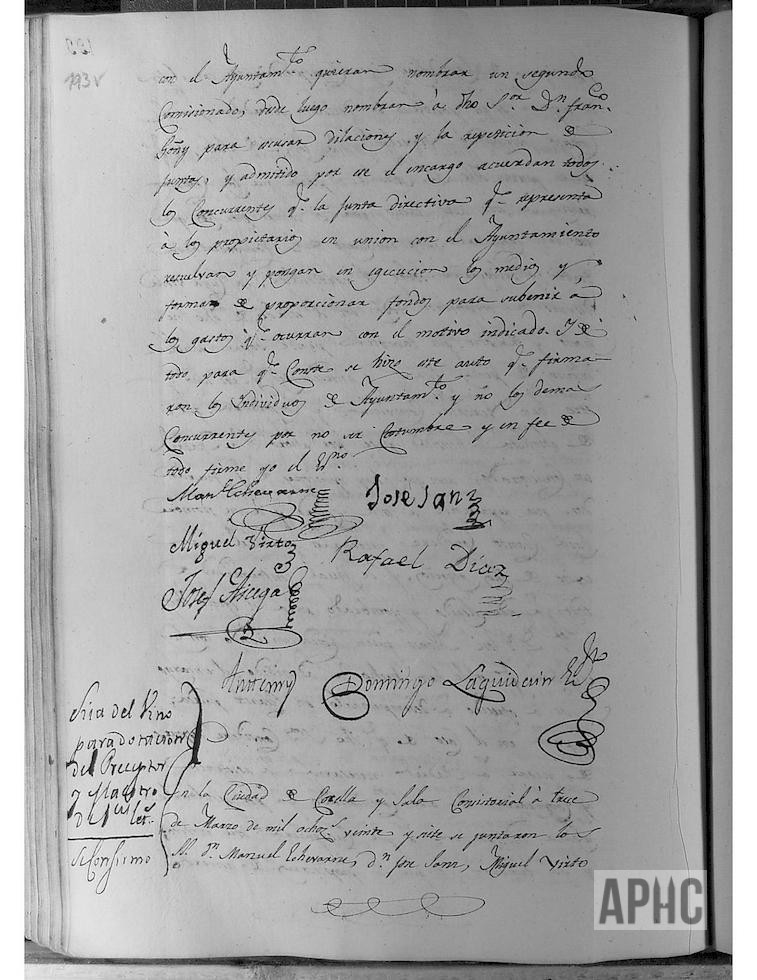 193v
con el Ayuntam.to quieran nombrar un segundo
Comisionado, desde luego nombran à dho S.or D.n Fran.co
Goñy para escusar dilaciones y la repeticion de
juntas, y admitido por ese el encargo acuerdan todos
los Concurrentes q.e la junta directiva q.e representa
à los propietarios en union con el Ayuntamiento
resuelvan y pongan en egecucion los medios y
formas de proporcionar fondos para subenir à
los gastos q.e ocurran con el motivo indicado. Y de
todo para q.e Conste se hizo este auto q.e firma
ron los Individuos de Ayuntam.to y no los demas
Concurrentes por no ser Costumbre y en fee de
todo firme yo el Es.no
Man.l Echevarria
Jose Sanz
Miguel Virto
Rafael Diez
Josef Arcega
Ante my Domingo Laquidain Es.no
Sisa del Vino
para dotacion
del Preceptor
y Maestro
de 1.as let.s
se consumo
En la Ciudad de Corella y Sala Consistorial à trece
de Marzo de mil ocho.s veinte y siete se juntaron los
S.S. D.n Manuel Echevarria, d.n Jose Sanz, Miguel Virto
APHC